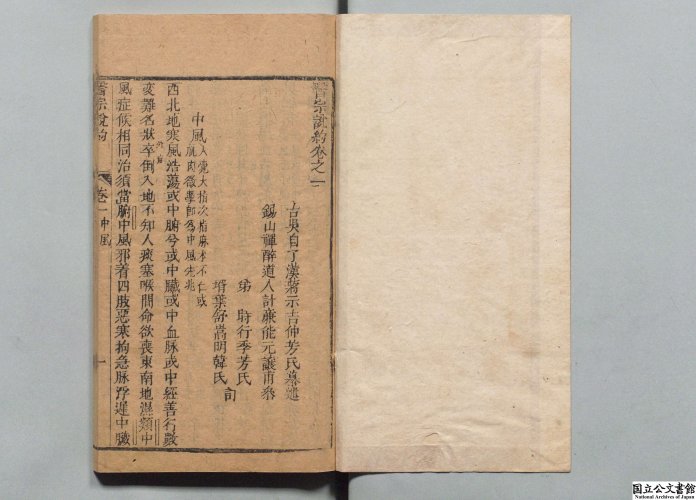 醫宗說約卷之一
古吳自了漢蔣示吉仲芳氏纂述
錫山禪醉道人計廉能元讓甫參
弟 時行季芳氏
壻葉舒嵩明韓氏 訂
中風 人覺大拇次指麻木不仁或
肌肉微掣即爲中風先兆
西北地寒風浩蕩或中腑兮或中臟或中血脉或中經善行數
變難名狀卒倒入地不知人痰塞喉間命欲喪東南地濕類中
風症候相同治須當腑中風邪着四肢惡寒拘急脉浮遲中臟
醫宗說約
卷一 中風
一
国立公文書館
National Archives of Japan